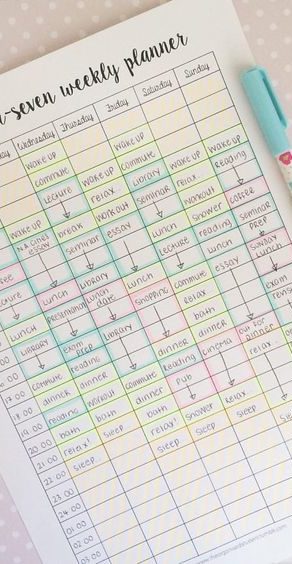 -seven weekly planner
ay Wednesday Thursday Friday Saturday Sunday
wake up wake up
commute wake up commute wake up wake up
lecture relax library relax reading
wake up break workout seminar workout coffee
essay seminar essay lunch shower seminar prep
coffee lunch library lunch lecture reading lunch sunday lunch
lecture presentation lunch date shopping commute essay
lunch exam prep library relax exam revision
library reading dinner bath out for dinner
17 00 commute dinner dinner reading dinner relax
18 00 dinner workout commute pub cinema
19 00 reading bath dinner
20 00 bath sleep bath shower relax sleep
21 00 relax relax sleep sleep
22 00 sleep sleep
23 00
24 00
01 00
02 00
03 00